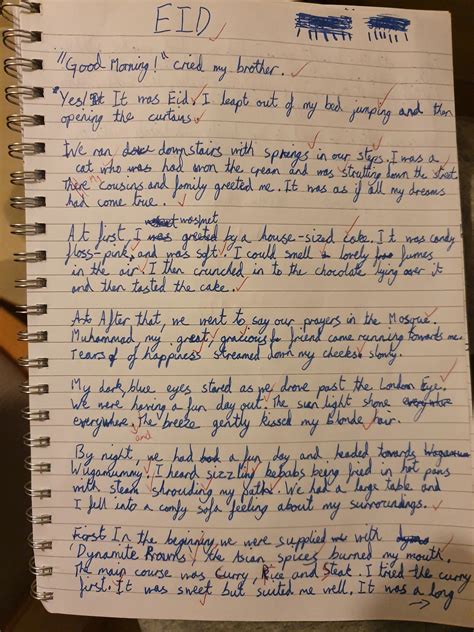 EID
"Good Morning!" cried my brother.
"Yes! It It was Eid. I leapt out of my bed jumping and then
opening the curtains.
We ran downstairs with springs in our steps. I was a
cat who had won the cream and was strutting down the street.
There cousins and family greeted me. It was as if all my dreams
had come true.
was met
At first I by a house-sized cake. It was candy
floss-pink, and was soft. I could smell lovely fumes
in the air. I then crunched in to the chocolate lying over it
and then tasted the cake.
After that, we went to say our prayers in the Mosque.
Muhammad, my great, gracious friend came running towards me.
Tears of happiness streamed down my cheeks slowly.
My dark, blue eyes stared as we drove past the London Eye.
We were having a fun day out. The sun light shone
everywhere. The breeze gently kissed my blonde
and
By night, we had a fun day and headed towards
Wugamummy. I heard sizzling kebabs being fried in hot pans
with steam shrouding my paths. We had a large table and
I fell into a comfy sofa feeling about my surroundings.
First In the beginning we were supplied with
'Dynamite Prawns', the Asian spices burned my mouth.
The main course was Curry, Rice and Steak. I tried the curry
first. It was sweet but suited me well. It was a long